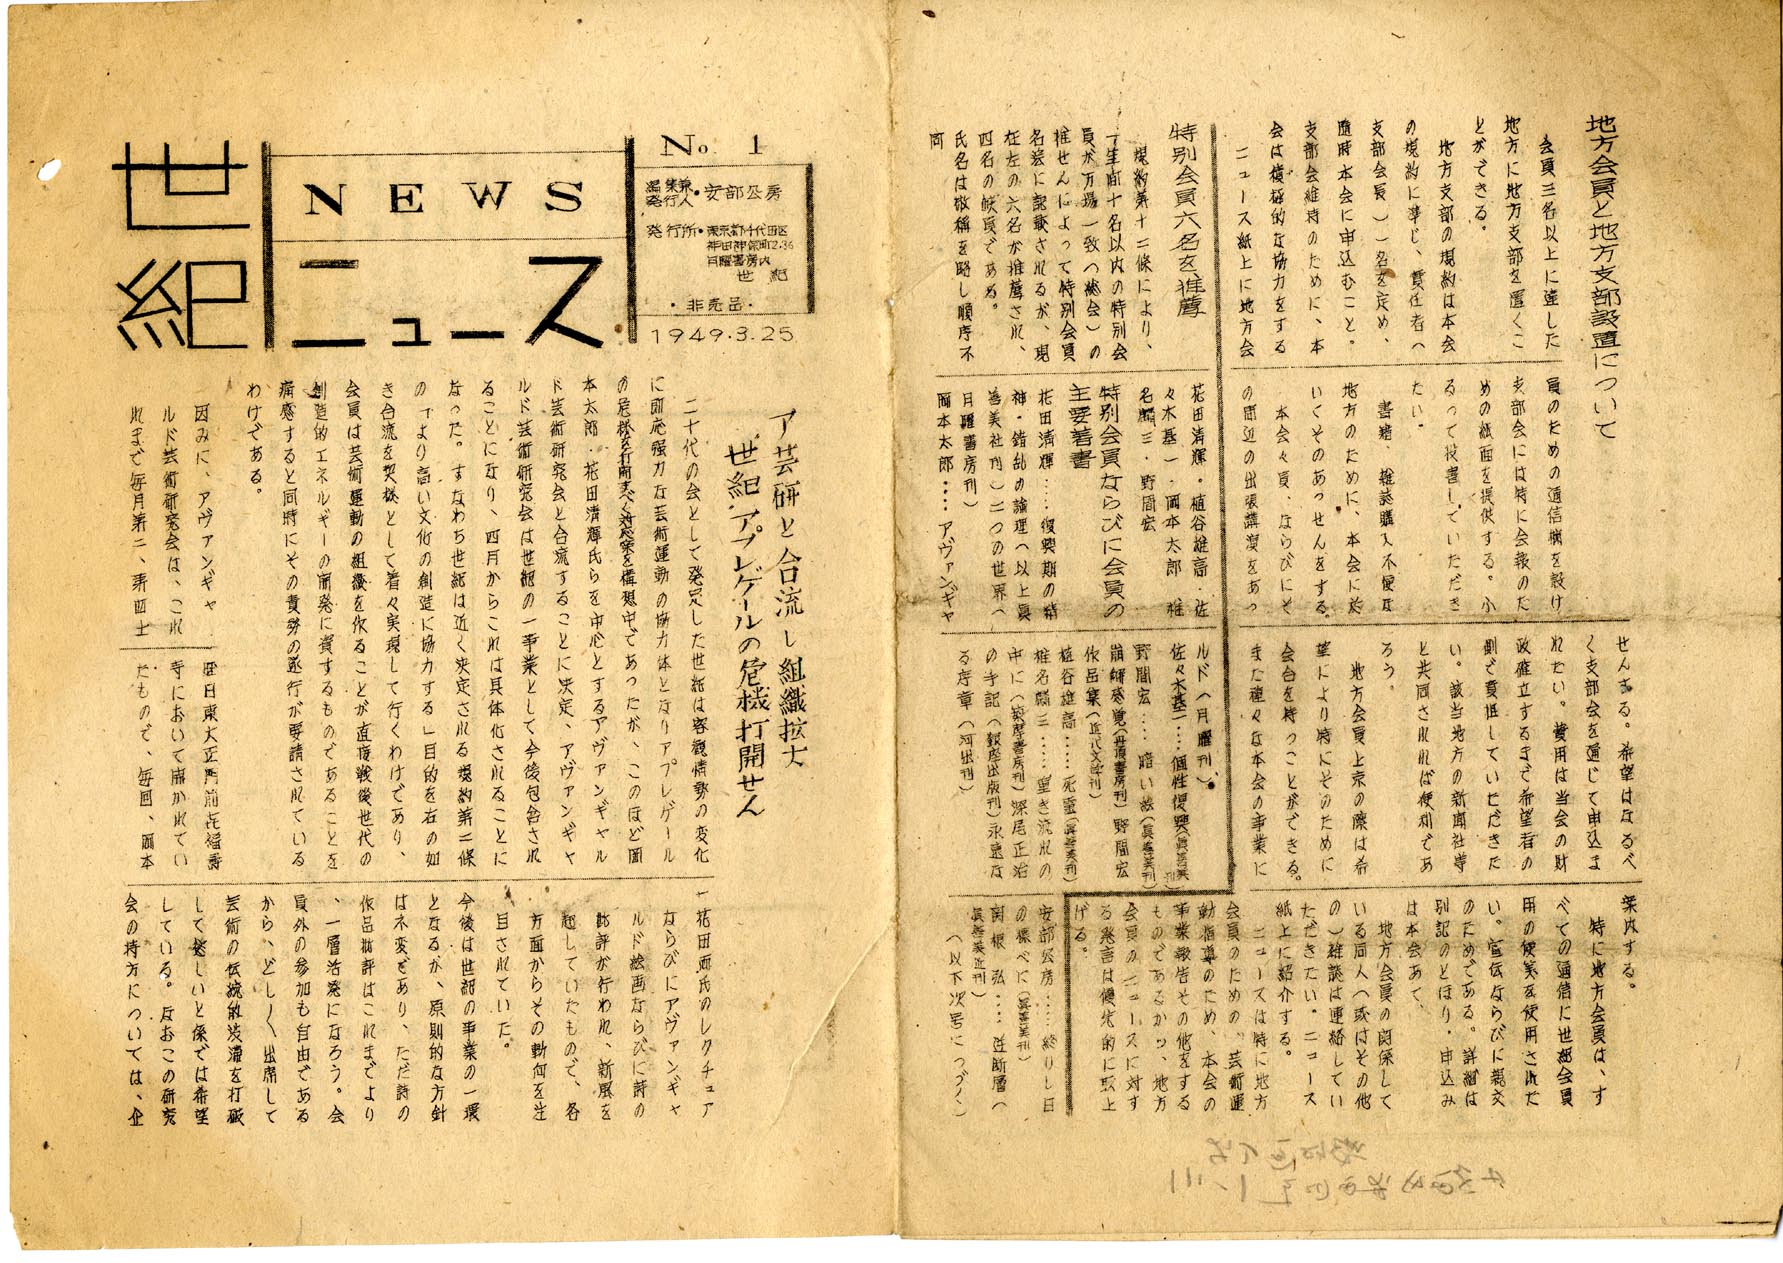 世紀
NEWS
ニュース
No. 1
編集兼
発行人・安部公房
発行所・東京都千代田区
神田神保町2.36
月曜書房内
世紀
・非売品・
1949.3.25
ア芸研と合流し組織拡大
世紀、アプレゲールの危機打開せん
二十代の会として発足した世紀は客観情勢の変化
に即応強力な芸術運動の協力体となりアプレゲール
の危機を打開すべく対応策を構想中であったが、このほど岡
本太郎・花田清輝氏らを中心とするアヴァンギャル
ド芸術研究会と合流することに決定、アヴァンギャ
ルド芸術研究会は世紀の一事業として今後包含され
ることになり、四月からこれは具体化されることに
なった。すなわち世紀は近く決定される規約第二條
の「より高い文化の創造に協力する」目的を右の如
き合流を契機として着々実現して行くわけであり、
会員は芸術運動の組織を作ることが直接戦後世代の
創造的エネルギーの開発に資するものであることを
痛感すると同時にその責務の遂行が要請されている
わけである。
因みに、アヴァンギャ
ルド芸術研究会は、これ
れまで毎月第二、第四土
曜日東大正門前喜福寿
寺において開かれてい
たもので、毎回、岡本
、花田両氏のレクチュア
ならびにアヴァンギャ
ルド絵画ならびに詩の
批評が行われ、新風を
起していたもので、各
方面からその動向を注
目されていた。
今後は世紀の事業の一環
となるが、原則的な方針
は不変であり、ただ詩の
作品批評はこれまでより
、一層活発になろう。会
員外の参加も自由である
から、どしどし出席して
芸術の伝統的渋滞を打破
して欲しいと係では希望
している。なおこの研究
会の持方については、企
地方会員と地方支部設置について
会員三名以上に達した
地方に地方支部を置くこ
とができる。
地方支部の規約は本会
の規約に準じ、責任者(
支部会長)一名を定め、
随時本会に申込むこと。
支部会維持のために、本
会は積極的な協力をする
ニュース紙上に地方会
員のための通信欄を設け
支部会には特に会報のた
めの紙面を提供する。ふ
るって投書していただき
たい。
書籍、雑誌購入不便な
地方のために、本会に於
いてそのあっせんをする。
本会々員、ならびにそ
の周辺の出張講演をあっ
せんする。希望はなるべ
く支部会を通じて申込ま
れたい。費用は当会の財
政確立するまで希望者の
側で負担していただきた
い。該当地方の新聞社等
と共同されれば便利であ
ろう。
地方会員上京の際は希
望により特にそのために
会合を持つことができる。
また種々な本会の事業に
案内する。
特に地方会員は、す
べての通信に世紀会員
用の便箋を使用された
い。宣伝ならびに親交
のためである。詳細は
別記のとほり・申込み
は本会あて、
地方会員の関係して
いる同人(或はその他
の)雑誌は連絡してい
ただきたい。ニュース
紙上に紹介する。
ニュースは特に地方
会員のための、芸術運
動指導のため、本会の
事業報告その他をする
ものであるから、地方
会員のニュースに対す
る発言は優先的に取上
げる。
特別会員六名を推薦
規約第十二條により、
「生前十名以内の特別会
員が万場一致(総会)の
推せんによって特別会員
名簿に記載されるが、現
在左の六名が推薦され、
四名の缺員である。
氏名は敬称を略し順序不
同
花田清輝・植谷雄高・佐
々木基一・岡本太郎 椎
名麟三・野間宏
特別会員ならびに会員の
主要著書
花田清輝……復興期の精
神・錯乱の論理(以上眞
善美社刊)二つの世界(
月曜書房刊)
岡本太郎……アヴァンギャ
ルド(月曜刊)。
佐々木基一……個性復興(眞善美刊)
野間宏……暗い絵(眞善美刊)
崩解感覚(丹頂書房刊)野間宏
作品集(近代文学刊)
植谷雄高……死霊(眞善美刊)
椎名麟三……重き流れの
中に(筑摩書房刊)深尾正治
の手記(銀座出版刊)永遠な
る序章(河出刊)
安部公房……終りし日
の標べに(眞善美刊)
関根 弘……沙断層(
眞善美近刊)
(以下次号につづく)